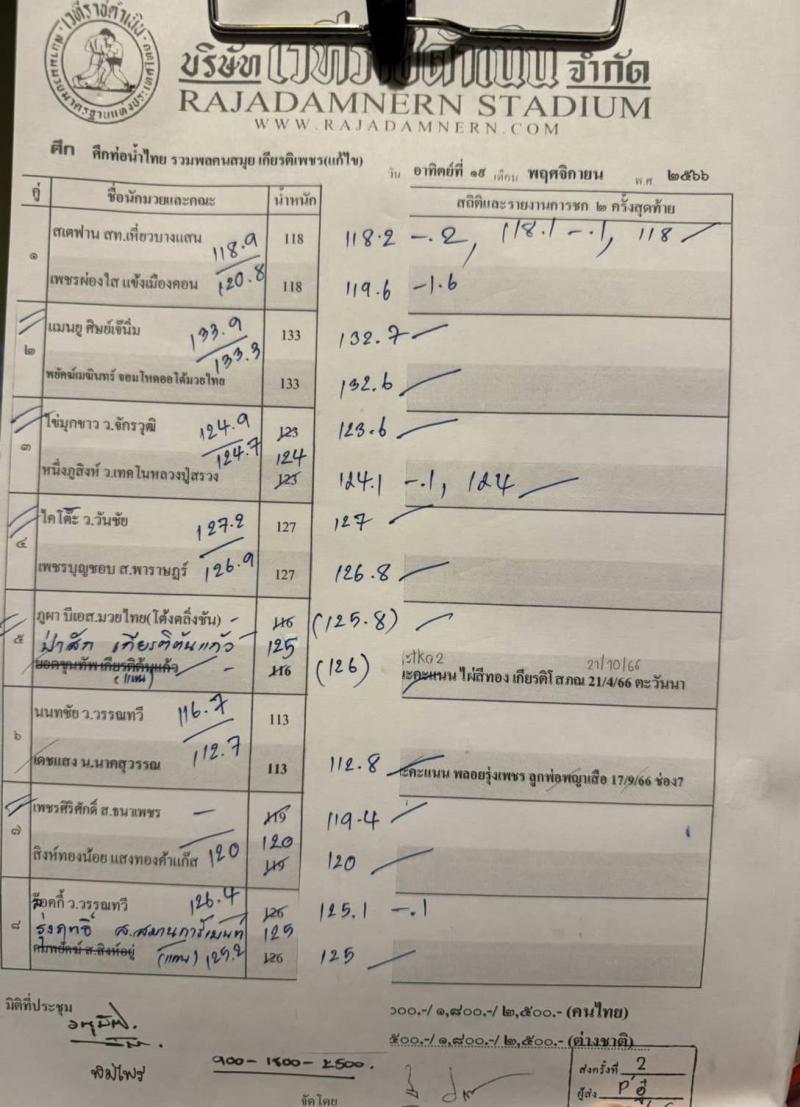 เวทีราชดำเนิน
บริษัท เวทีราชดำเนิน จำกัด
RAJADAMNERN STADIUM
WWW.RAJADAMNERN.COM
ศึก ศึกท่อน้ำไทย รวมพลคนสมุย เกียรติเพชร(แก้ไข) วัน อาทิตย์ที่ ๑๙ เดือน พฤศจิกายน พ.ศ ๒๕๖๖
คู่ ชื่อนักมวยและคณะ น้ำหนัก สถิติและรายงานการชก ๒ ครั้งสุดท้าย
๑ สเตฟาน สท.เที่ยวบางแสน 118.9 118 118.2 -.2, 118.1 -.1, 118
เพชรผ่องใส แข้งเมืองคอน 120.8 118 119.6 -1.6
๒ แมนยู ศิษย์เจ๊นิ่ม 133.9 133 132.7
พยัคฆ์เมฆินทร์ จอมโหดออโต้มวยไทย 133.3 133 132.6
๓ ไข่มุกขาว ว.จักรวุฒิ 124.9 123 123.6
124
หนึ่งภูสิงห์ ว.เทคโนหลวงปู่สรวง 124.7 123 124.1 -.1, 124
๔ ไคโต๊ะ ว.วันชัย 127.2 127 127
เพชรบุญชอบ ส.พาราษฎร์ 126.9 127 126.8
๕ ภูผา บีเอส.มวยไทย(โค้งตลิ่งชัน) - 116 (125.8)
ป่าสัก เกียรติต้นแก้ว 125
ยอดขุนทัพ เกียรติต้นแก้ว - 116 (126) 21/10/66
(แทน) ะคะแนน ไผ่สีทอง เกียรติโสภณ 21/4/66 ตะวันนา
๖ นนทชัย ว.วรรณทวี 116.7 113
เดชแสง น.นาคสุวรรณ 112.7 113 112.8 ะคะแนน พลอยรุ่งเพชร ลูกพ่อพญาเสือ 17/9/66 ช่อง7
๗ เพชรศิริศักดิ์ ส.ธนาเพชร - 119 119.4
120
สิงห์ทองน้อย แสงทองค้าแก๊ส 120 119 120
๘ ล็อคกี้ ว.วรรณทวี 126.4 126 125.1 -.1
รุ่งฤทธิ์ ส.สมานการ์เมนท์ 125
ส.สิงห์อยู่ (แทน) 125.2 126 125
มติที่ประชุม
๐๐.-/ ๑,๘๐๐.-/ ๒,๕๐๐.- (คนไทย)
๕๐๐.-/ ๑,๘๐๐.-/ ๒,๕๐๐.- (ต่างชาติ)
๑๐๐ - ๑๘๐๐ - ๒๕๐๐.
ส่งครั้งที่ 2
จัดโดย
ผู้ส่ง P'อี